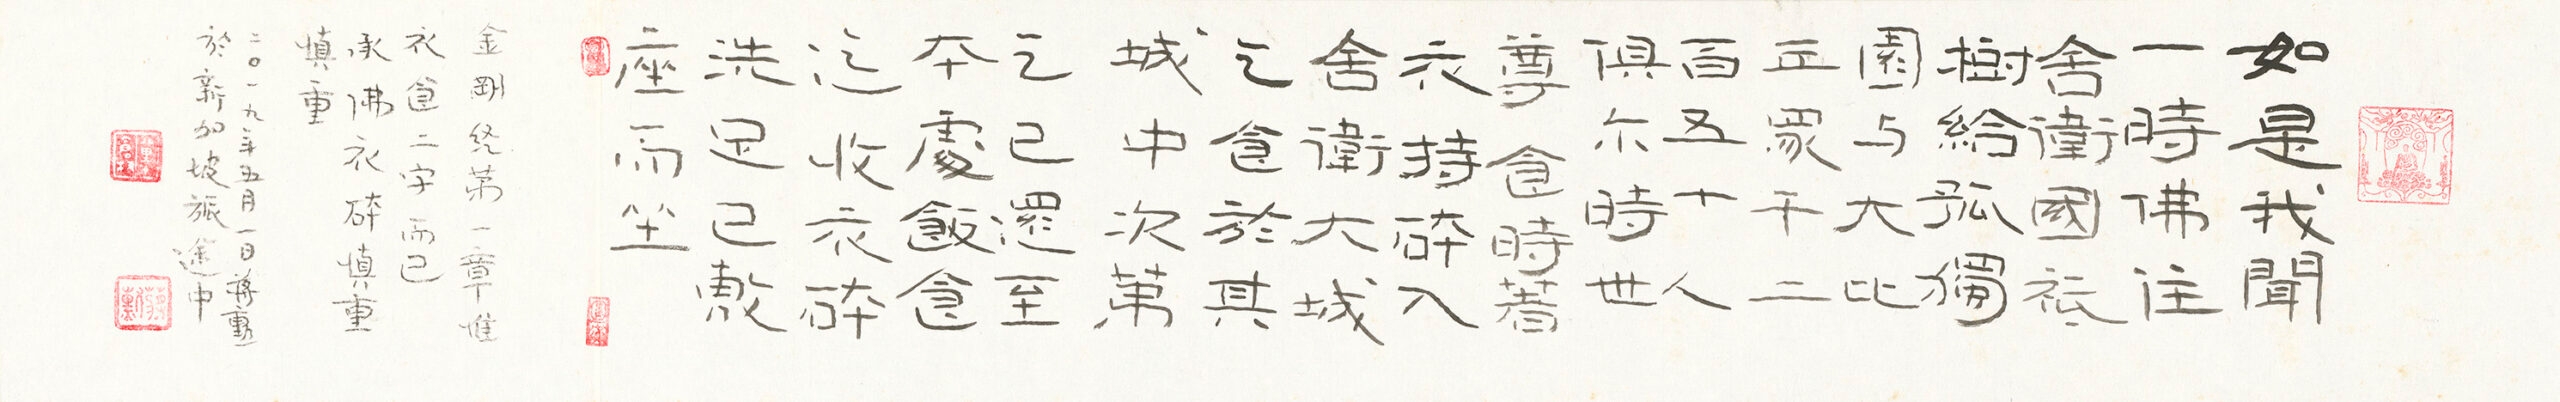 如是我聞
一時佛住
舍衛國祇
樹給孤獨
園与大比
丘眾千二
百五十人
俱尔時世
尊食時著
衣持砵入
舍衛大城
乞食於其
城中次第
乞已還至
本處飯食
迄收衣砵
洗足已敷
座而坐
金剛经第一章惟
衣食二字而已
承佛衣砵慎重
慎重
二〇一九年五月一日蔣勳
於新加坡旅途中